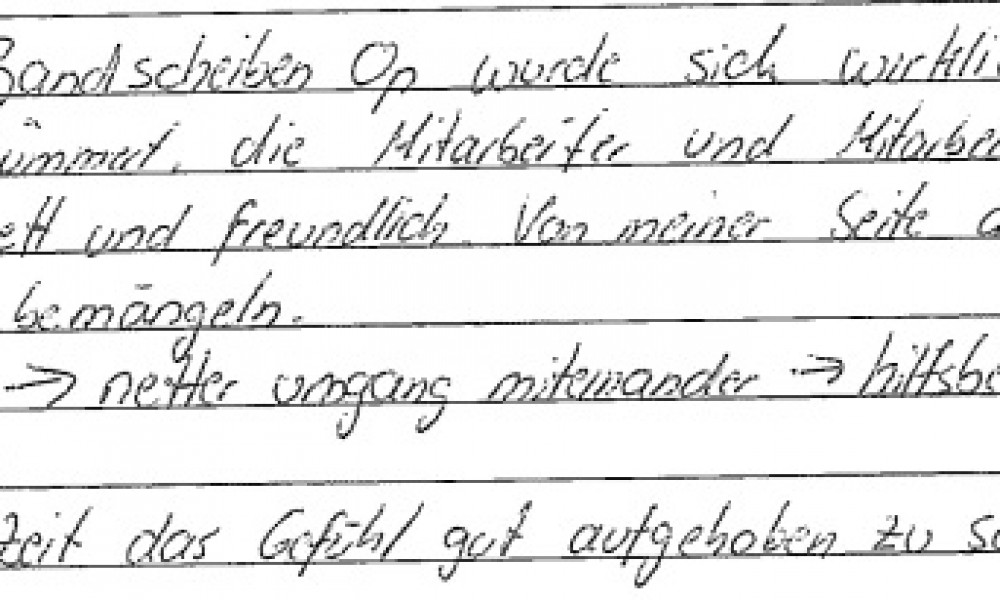 Bandscheiben Op wurde sich wirkli
ümmert, die Mitarbeiter und Mitarbei
ett und freundlich. Von meiner Seite
bemängeln.
→ netter umgang miteinander → hilfsbe
Zeit das Gefühl gut aufgehoben zu se